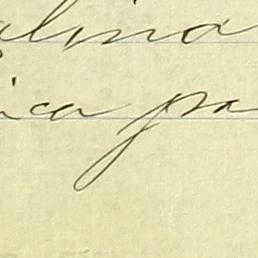 alina
ica pa